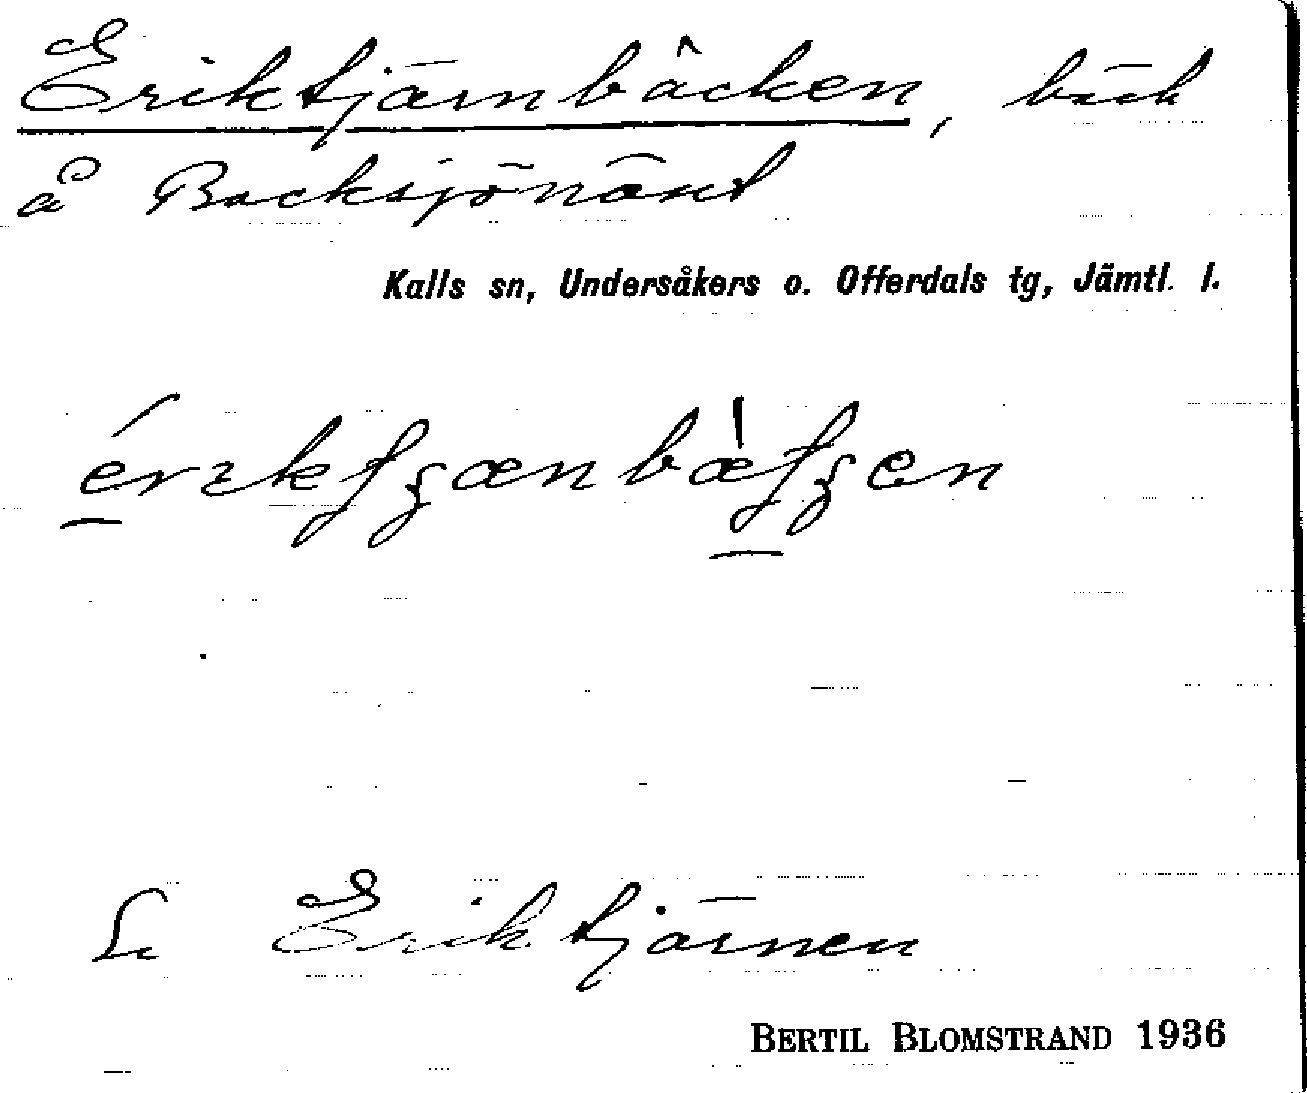 Eriktjärnbäcken, bäck
å Backsjönäset
Kalls sn, Undersåkers o. Offerdals tg, Jämtl. l.
Se Eriktjärnen
BERTIL BLOMSTRAND 1936